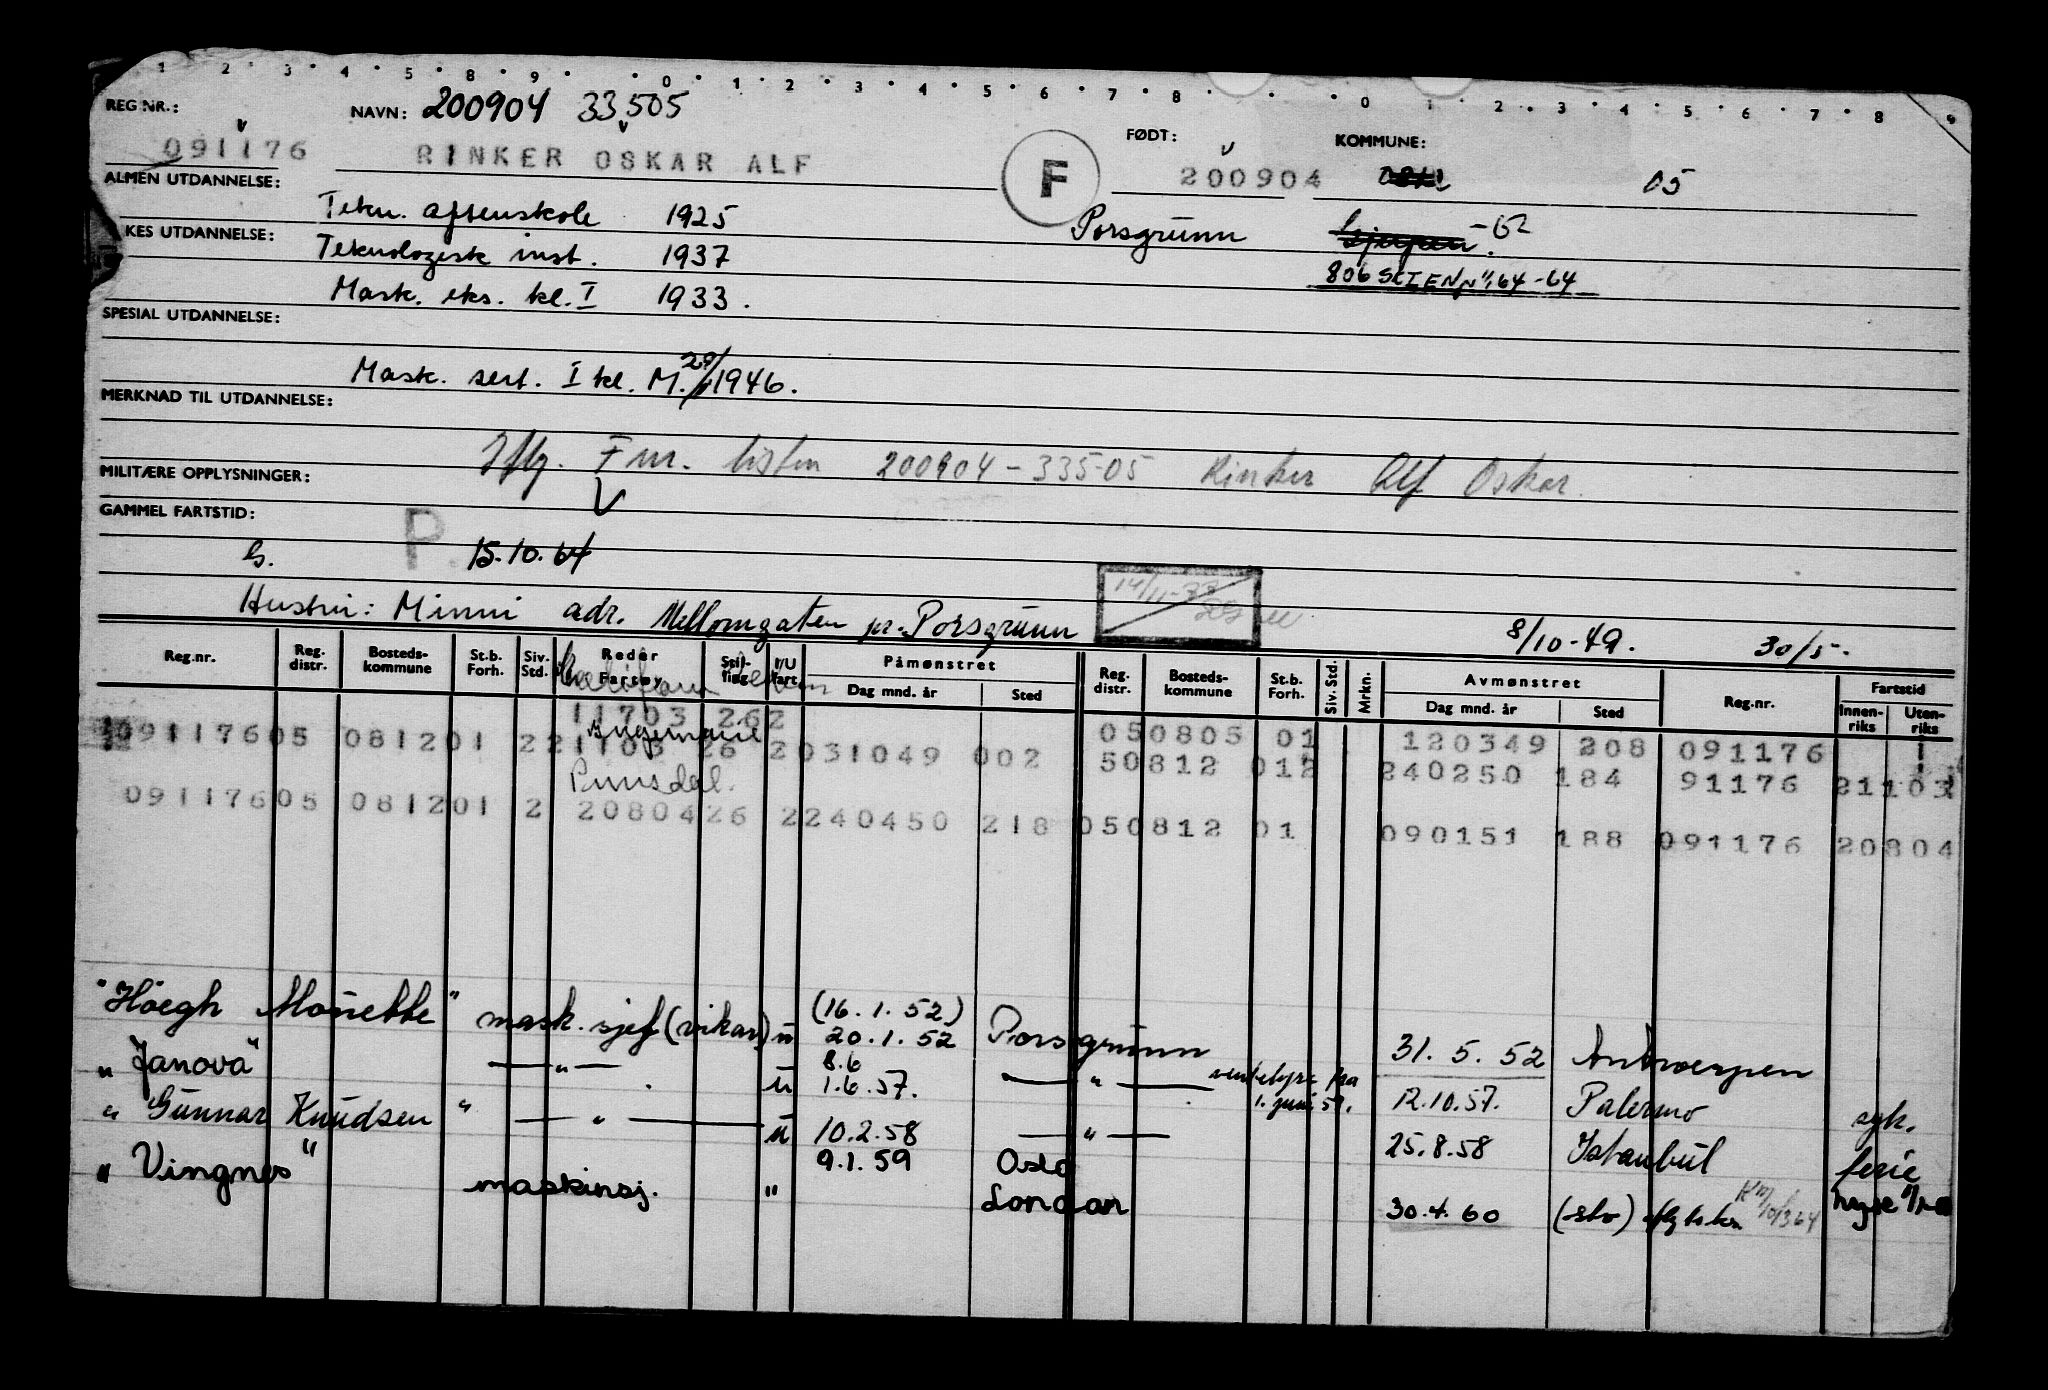 1 2 3 4 5 8 9 0 1 2 3 4 5 6 7 8 0 1 2 3 4 5 6 7 8 9
REG NR.: NAVN: 200904 33505 FØDT: KOMMUNE:
091176 RINKER OSKAR ALF F 200904 05
ALMEN UTDANNELSE: Tekn. aftenskole 1925 Porsgrunn Gjerpen -62
KES UTDANNELSE: Teknologisk inst. 1937
806 SKIEN 64-64
Mask. eks. kl. I 1933.
SPESIAL UTDANNELSE:
Mask. sert. I kl. M. 1946.
MERKNAD TIL UTDANNELSE:
Iflg. Fnr. listen 200904-33505 Rinker Alf Oskar
MILITÆRE OPPLYSNINGER:
GAMMEL FARTSTID: P.
G. 15.10.64
Hustru: Minni adr. Mellomgaten pr. Porsgrunn 14/11-73 8/10-49. 30/5.
Reg.nr. Reg. distr. Bosteds-kommune St.b. Forh. Siv. Std. Reder Fartøy Stil-ling I/U fart Påmønstret Dag mnd. år Sted Reg. distr. Bosteds-kommune St.b. Forh. Siv. Std. Mrkn. Avmønstret Dag mnd. år Sted Reg.nr. Fartstid Innen-riks Uten-riks
11703 262 050805 01 120349 208 091176
09117605 081201 2 21103 26 2 031049 002 50812 012 240250 184 91176 21103
09117605 081201 2 20804 26 2 240450 218 050812 01 090151 188 091176 20804
"Höegh Mariette" mask. sjef (vikar) u (16.1.52) 20.1.52 Porsgrunn 31.5.52 Antwerpen
"Janova" — " — u 8.6 1.6.57. — " — fra 1. juni 57. 12.10.57. Palermo syk.
"Gunnar Knudsen" — " — u 10.2.58 — " — 25.8.58 Istanbul ferie
"Vingnes" maskinsj. " 9.1.59 Oslo London 30.4.60